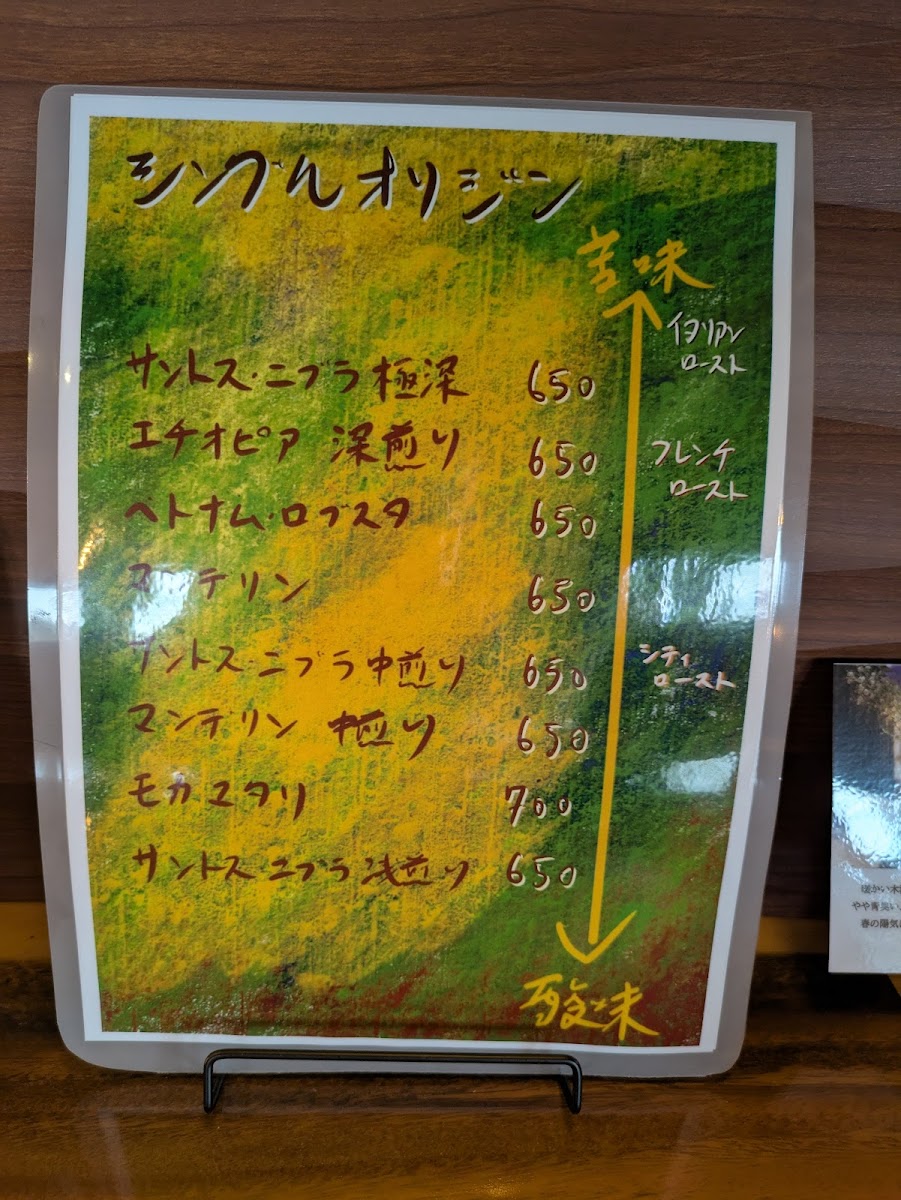 シングルオリジン
苦味
イタリアン
ロースト
サントス・ニブラ極深 650
エチオピア 深煎り 650
フレンチ
ロースト
ベトナム・ロブスタ 650
マンデリン 650
サントス・ニブラ中煎り 650
シティ
ロースト
マンデリン 中煎り 650
モカマタリ 700
サントス・ニブラ浅煎り 650
酸味
やや青
春の陽気